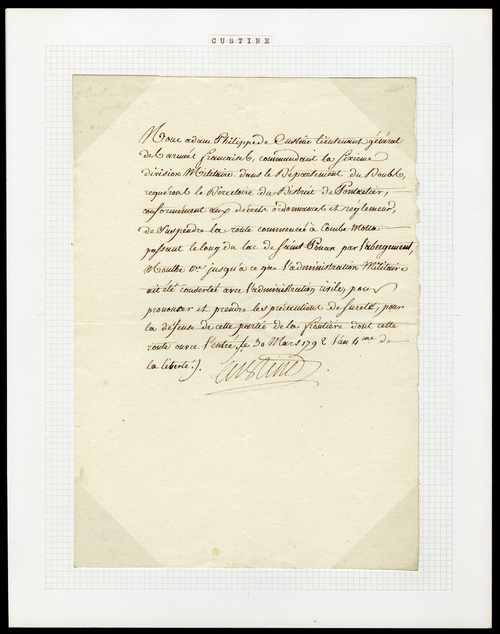 CUSTINE
Nous adam Philippe de Custine lieutenant général
des armées françaises, commandant la sixieme
division Militaire dans le Département du Doubs,
requerons le Directoire du District de Pontarlier,
conformément aux décrets ordonnances et réglement,
de suspendre la route commencée à Combe Motta
passant le long du lac de Saint Point par l'abergement,
Mouthe jusqu'à ce que l'administration Militaire
ait été consertée avec l'administration civile, pour
prononcer et prendre les précautions de sureté, pour
la defense de cette partie de la frontiere dont cette
route ouvre l'entrée, le 30 Mars 1792 l'an 4me de
la liberté./.
Custine